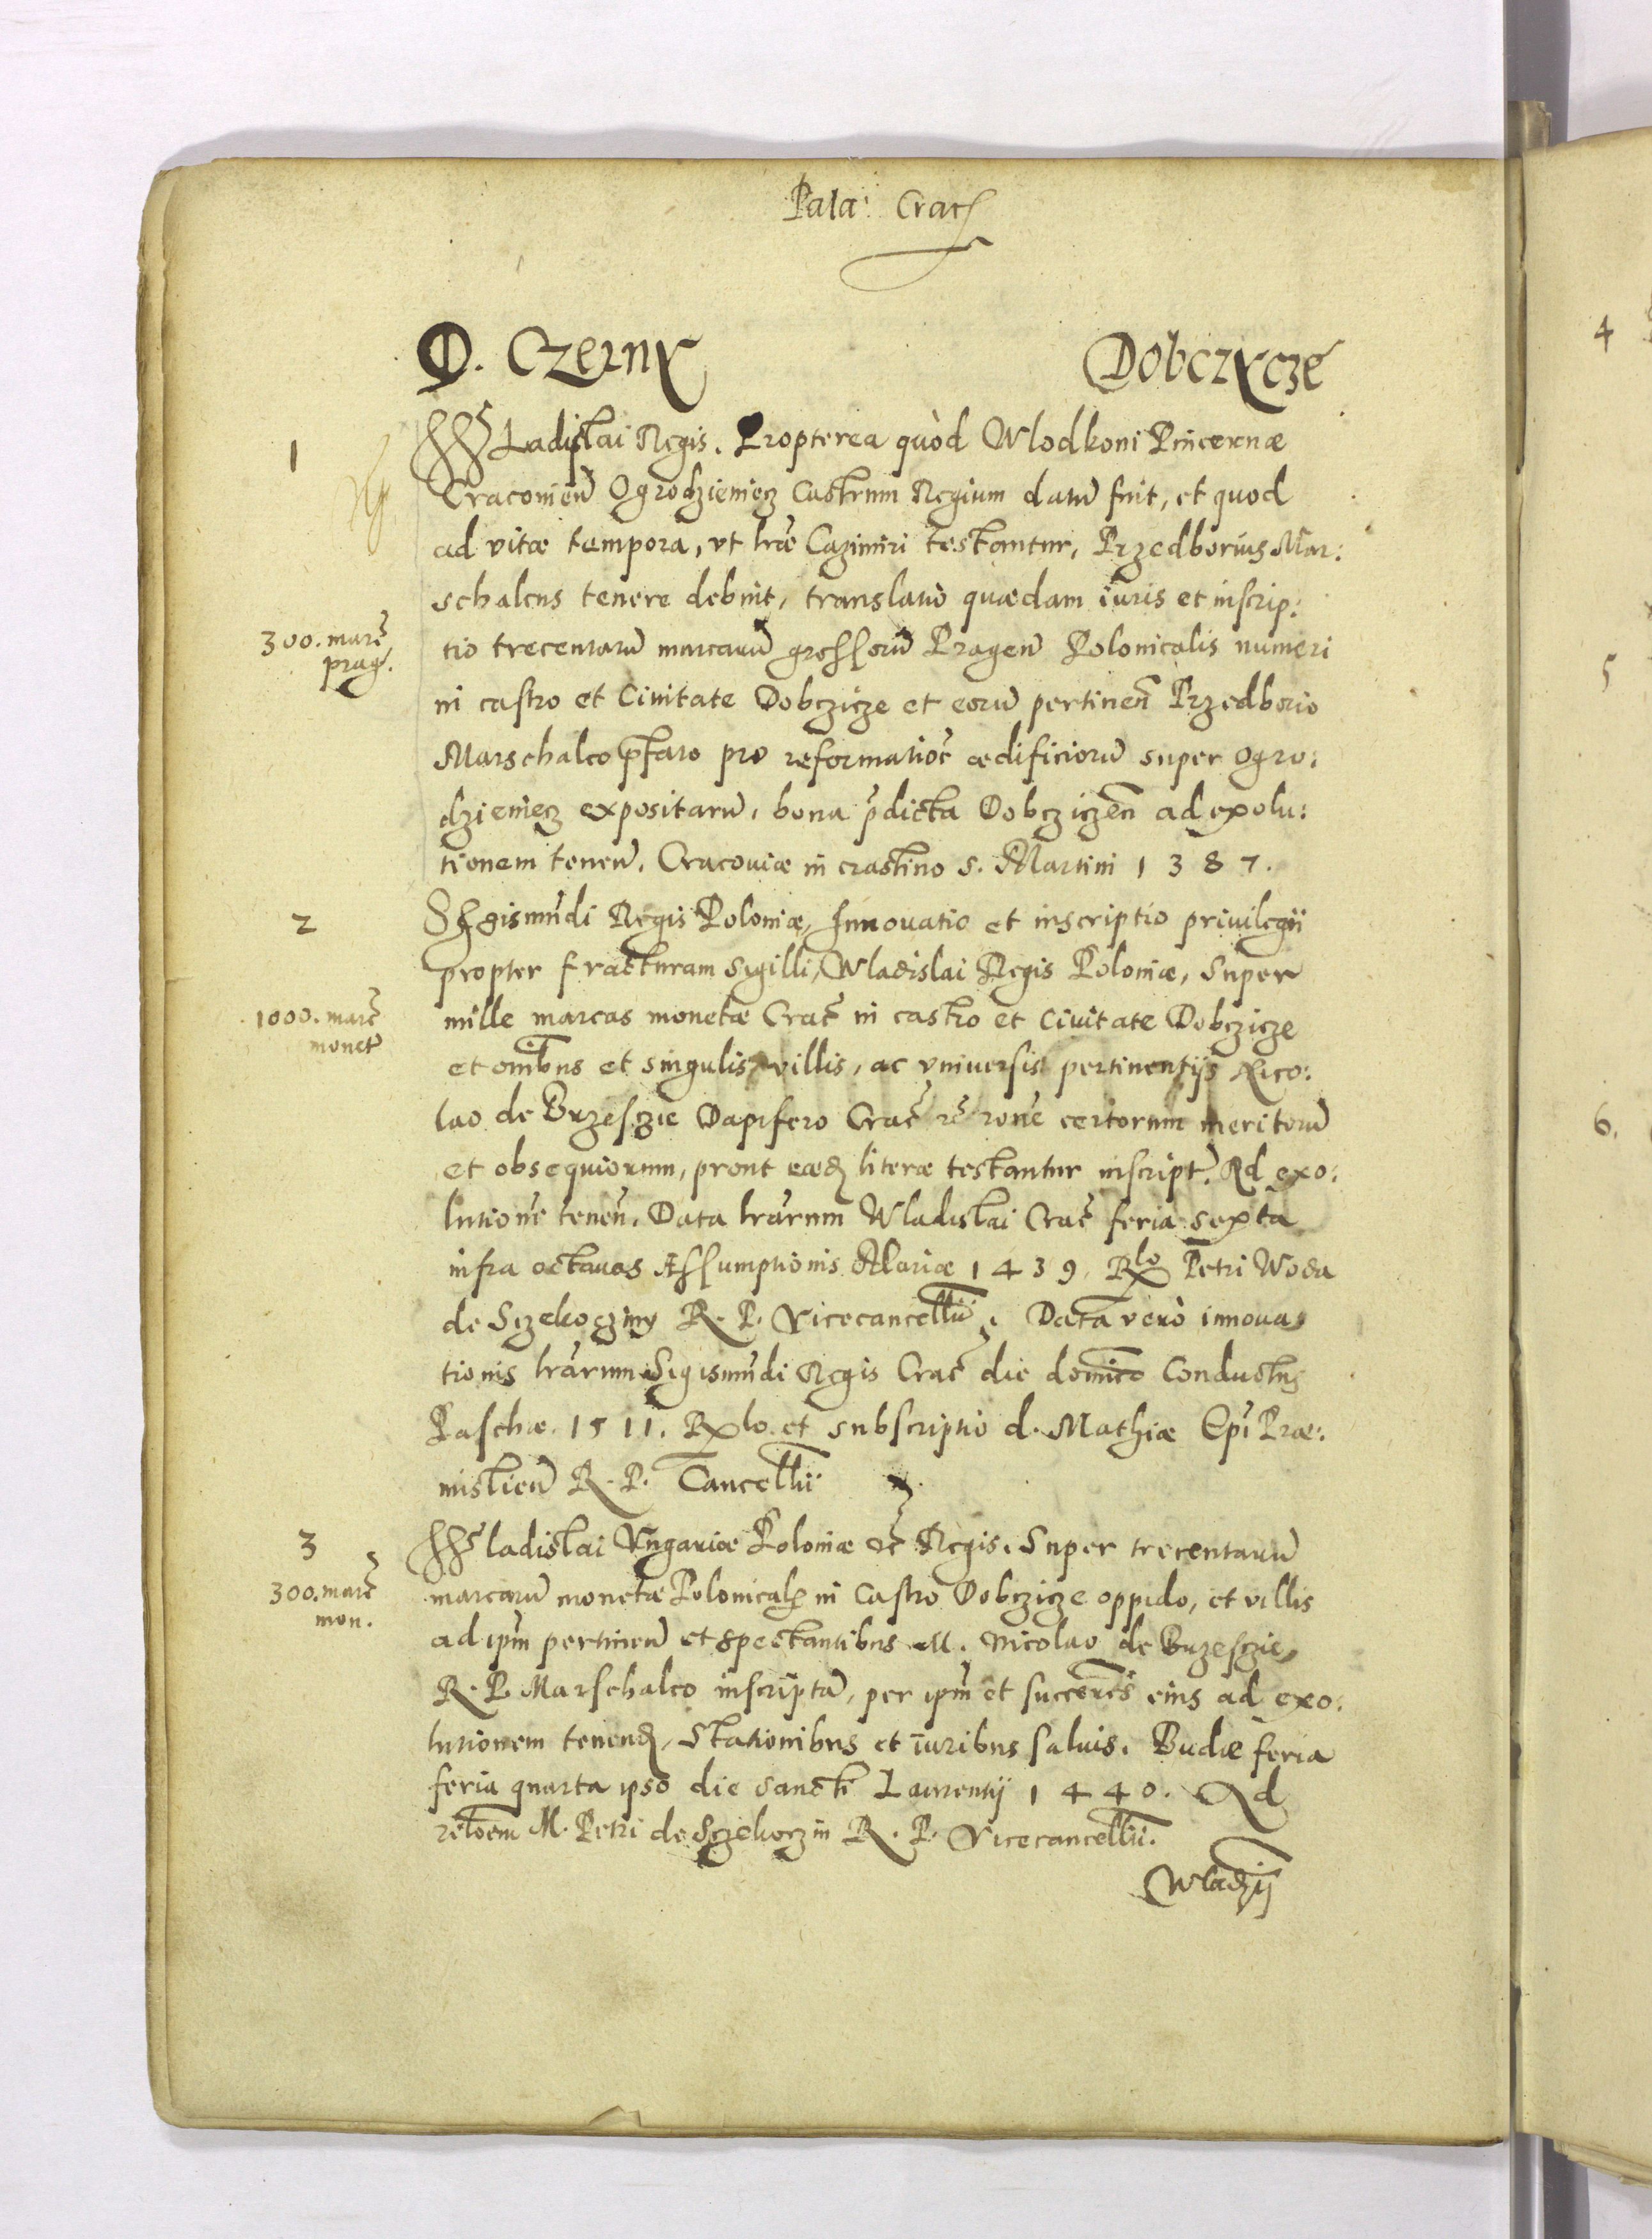 Pala: Crac
D. Czerny Dobczycze
1 Wladislai Regis. Propterea quòd Wlodkoni Pincernæ
Cracovien̄ Ogrodzieniecz Castrum Regium datū fuit, et quod
ad vitæ tempora, vt lr̄æ Cazimiri testantur, Przedborius Mar:
schalcus tenere debuit, translatio quædam iuris et inscrip:
300. marc̄
prag.
tio trecentarū marcarū grossorū Pragen̄ Polonicalis numeri
in castro et Ciuitate Dobczicze et eorū pertinen̄ Przedborio
Marschalco p̄fato pro reformatioe̅ ædificiorū super Ogro:
dzieniecz expositarū, bona p̄dicta Dobcziczen̄ ad exolu:
tionem tenen̄. Cracouiæ in crastino S. Martini 1387.
2 Sigismūdi Regis Poloniæ, Innouatio et inscriptio priuilegii
propter fracturam sigilli, Wladislai Regis Poloniæ, Super
1000. marc̄
monet̄
mille marcas monetæ Crac̄ in castro et Ciuitate Dobczicze
et om̄ibus et singulis villis, ac vniuersis pertinentijs Nico:
lao de Brzesczie Dapifero Crac̄ rōne certorum meritorū
et obsequiorum, prout eæd literæ testantur inscript̄. Ad exo:
lutionē tenen̄. Data lr̄arum Wladislai Crac̄ feria sexta
infra octauas Assumptionis Mariæ 1439. Rlo Petri Woda
de Sczekocziny R. P. Vicecancellii. Data verò innoua
tionis lr̄arum Sigismūdi Regis Crac̄ die dominico Conductus
Paschæ. 1511. Rlo. et subscriptio d. Mathiæ Ep̄i Præ:
mislien̄ R. P. Cancellii
3 Wladislai Vngariæ Poloniæ &c̄ Regis. Super trecentarū
300. marc̄
mon.
marcarū monetæ Polonical in Castro Dobczicze oppido, et villis
ad ip̄m pertinen̄ et spectantibus M. Nicolao de Brzesczie
R. P. Marschalco inscripta, per ip̄m et succeores eius ad exo:
lutionem tenend, Stationibus et iuribus saluis. Budæ feria
feria quarta ipso die Sancti Laurentij 1440. Ad
relōem M. Petri de Sczekoczin R. P. Vicecancellii.
Wladij
4
5
6.